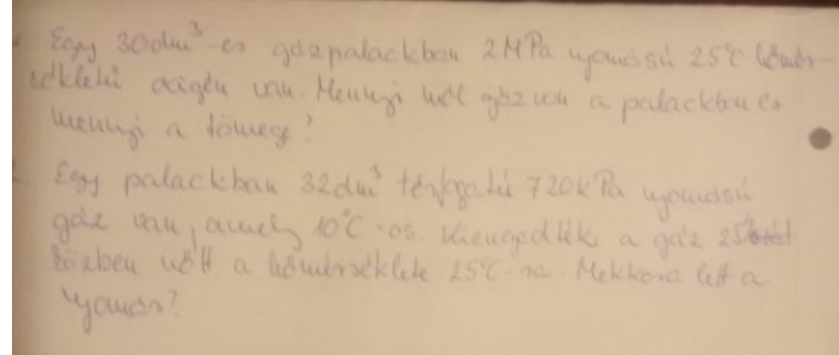 1. Egy 30dm³-es gázpalackban 2MPa nyomású 25°C hőmér-
sékletű oxigén van. Mennyi mól gáz van a palackban és
mennyi a tömege?
2. Egy palackban 32dm³ térfogatú 720kPa nyomású
gáz van, amely 10°C-os. Kiengedték a gáz 25%-át
közben nőtt a hőmérséklete 25°C-ra. Mekkora lett a
nyomás?